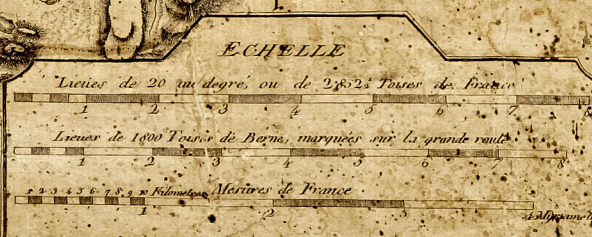 ECHELLE
Lieües de 20 au degré, ou de 2852½ Toises de France
1 2 3 4 5 6 7 8
Lieues de 1800 Toises de Berne, marquées sur la grande route
1 2 3 4 5 6 7 8
1 2 3 4 5 6 7 8 9 10 Kilometres Mesures de France
1 2 3 4 Myriamet